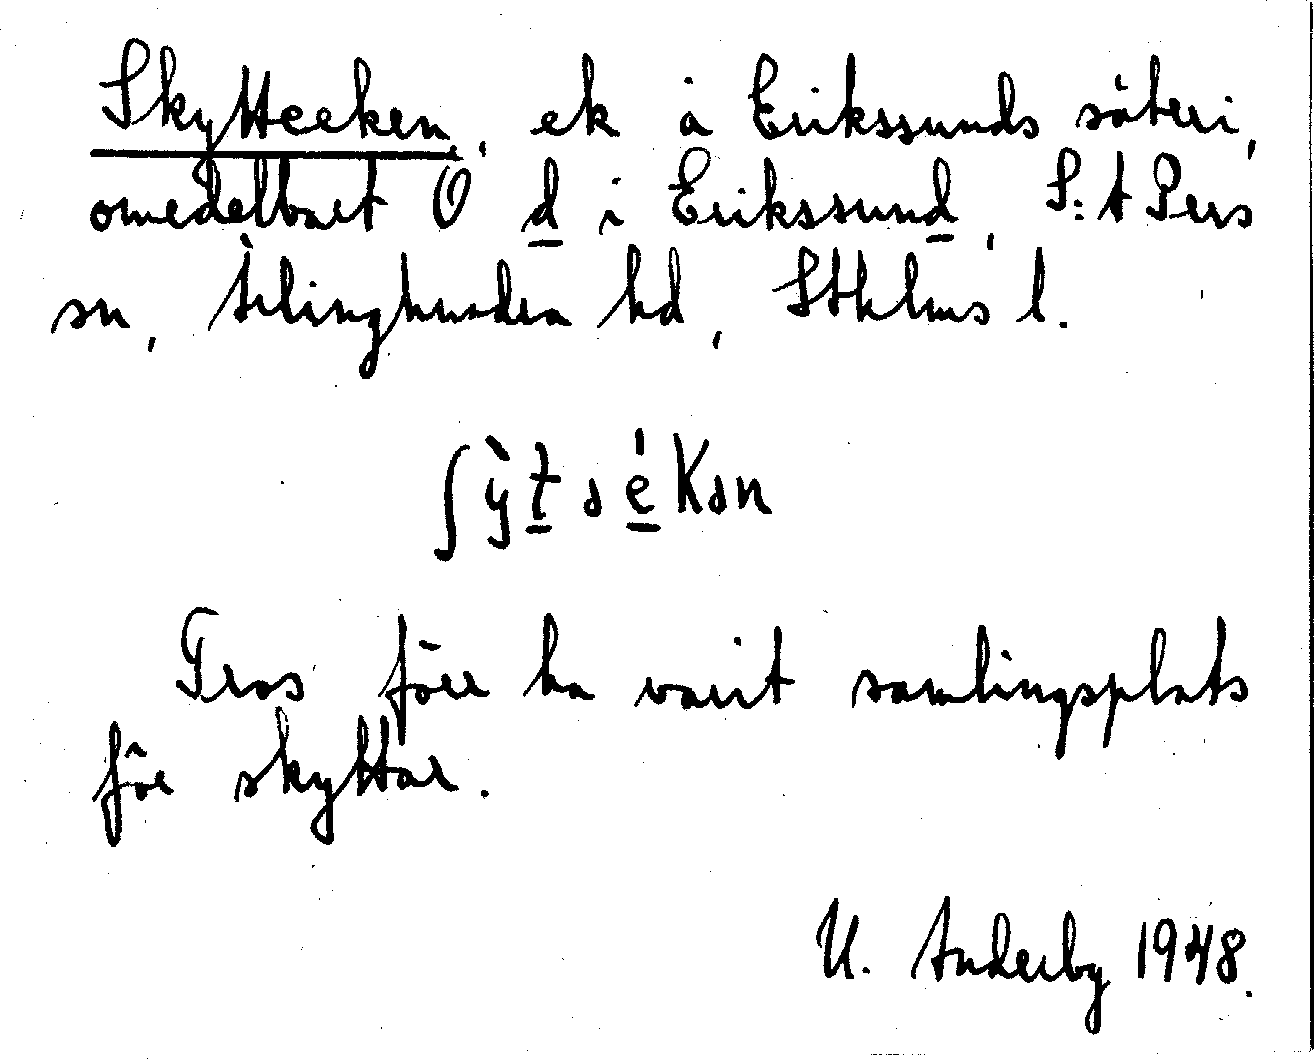 Skytteeken, ek å Erikssunds säteri,
omedelbart O d i Erikssund, S:t Pers
sn, Ärlinghundra hd, Sthlms l.
ʃỳtəéKən
Tros förr ha varit samlingsplats
för skyttar.
U. Anderby 1948.